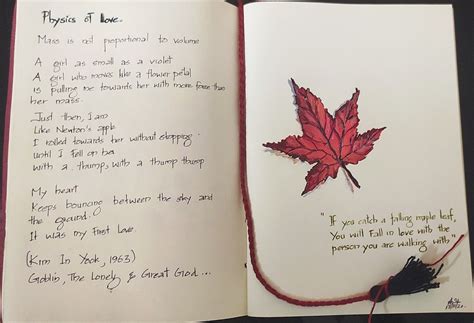 Physics of Love.
Mass is not proportional to volume
A girl as small as a violet
A girl who moves like a flower petal
is pulling me towards her with more force than
her mass.
Just then, I am
Like Newton's apple
I rolled towards her without stopping
until I fell on her
with a thump, with a thump thump
My heart
Keeps bouncing between the sky and
the ground.
It was my first love.
(Kim In Yook, 1963)
Goblin, The Lonely & Great God...
"If you catch a falling maple leaf,
You will Fall in love with the
person you are walking with."